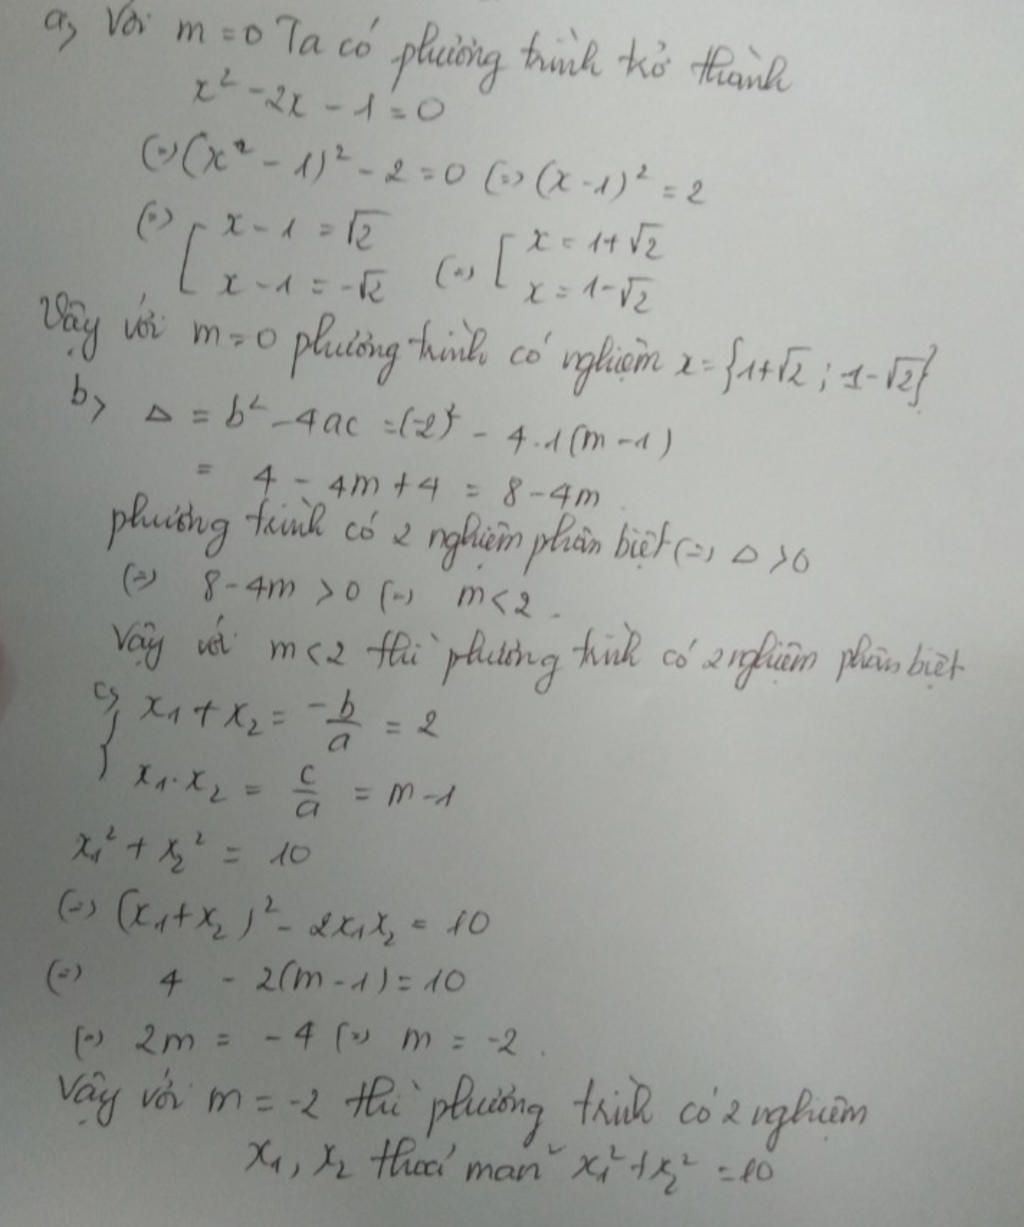 a, Với m = 0 Ta có phương trình trở thành
x² - 2x - 1 = 0
(=) (x² - 1)² - 2 = 0 (=) (x - 1)² = 2
(=) [ x - 1 = √2 (=) [ x = 1 + √2
x - 1 = -√2 x = 1 - √2
Vậy với m = 0 phương trình có nghiệm x = {1+√2 ; 1-√2}
b, Δ = b² - 4ac = (-2)² - 4.1(m - 1)
= 4 - 4m + 4 = 8 - 4m
phương trình có 2 nghiệm phân biệt (=) Δ > 0
(=) 8 - 4m > 0 (=) m < 2.
Vậy với m < 2 thì phương trình có 2 nghiệm phân biệt
c, { x₁ + x₂ = -b/a = 2
x₁.x₂ = c/a = m - 1
x₁² + x₂² = 10
(=) (x₁+x₂)² - 2x₁x₂ = 10
(=) 4 - 2(m - 1) = 10
(=) 2m = -4 (=) m = -2.
Vậy với m = -2 thì phương trình có 2 nghiệm
x₁, x₂ thoả mãn x₁² + x₂² = 10